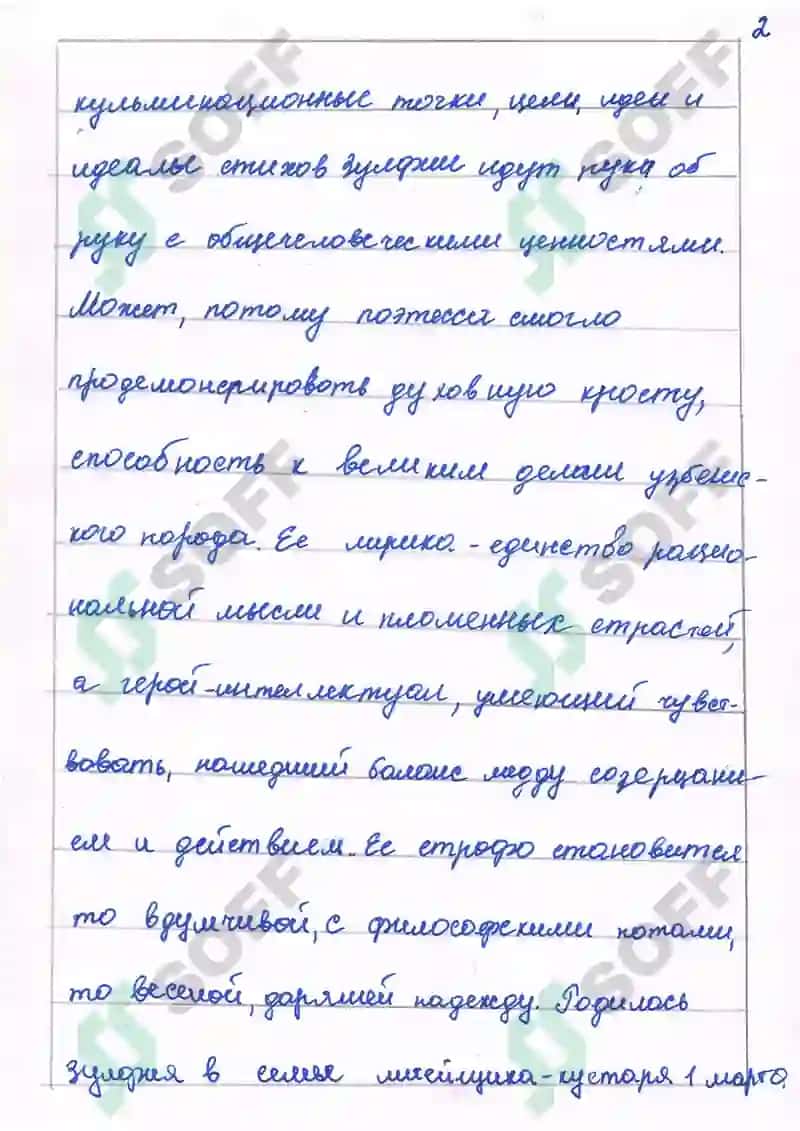 2
кульминационные точки, цели, идеи и
идеалы стихов Зулфии идут рука об
руку с общечеловеческими ценностями.
Может, потому поэтесса смогла
продемонсрировать духовную красоту,
способность к великим делам узбекс-
кого народа. Ее лирика - единство рацио-
нальной мысли и пламенных страстей,
а герой-интеллектуал, умеющий чувст-
вовать, нашедший баланс между созерцани-
ем и действием. Ее строфа становится
то вдумчивой, с философскими нотами,
то веселой, дарящей надежду. Родилась
Зулфия в семье литейщика-кустаря 1 марта
SOFF
SOFF
SOFF
SOFF
SOFF
SOFF